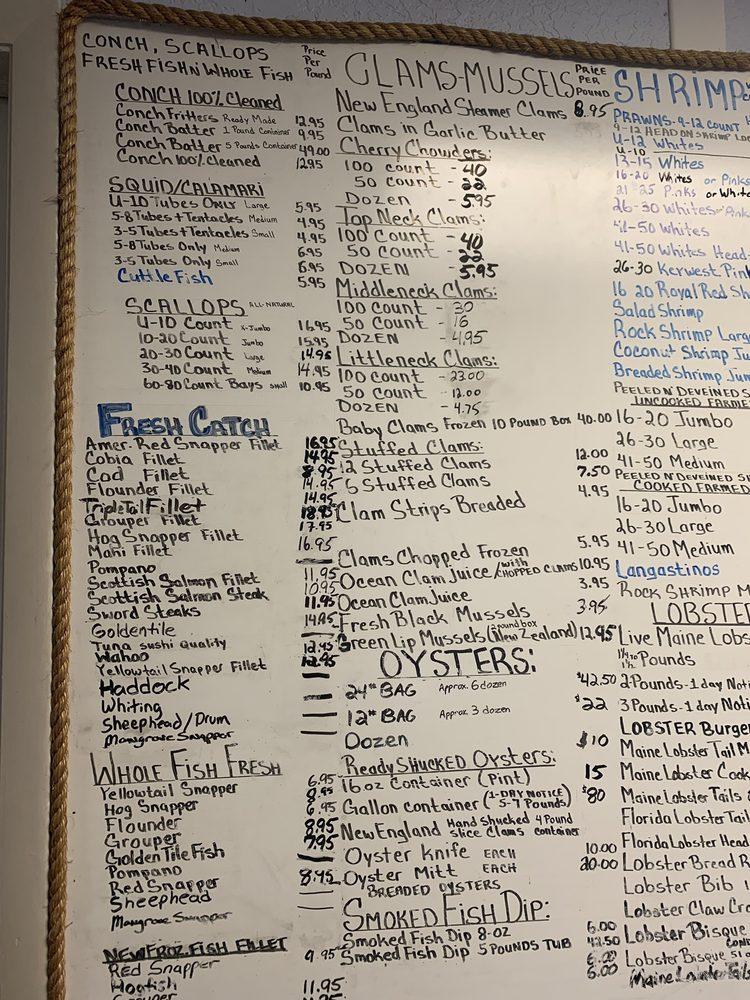 CONCH, SCALLOPS
FRESH FISH N' WHOLE FISH
Price
Per
Pound
CONCH 100% Cleaned
Conch Fritters Ready Made 12.95
Conch Batter 1 Pound Container 9.95
Conch Batter 5 Pounds Container 49.00
Conch 100% cleaned 12.95
SQUID/CALAMARI
U-10 Tubes ONLY Large 5.95
5-8 Tubes + Tentacles Medium 4.95
3-5 Tubes + Tentacles Small 4.95
5-8 Tubes Only Medium 6.95
3-5 Tubes Only Small 6.95
Cuttle Fish 5.95
SCALLOPS ALL-NATURAL
U-10 Count X-Jumbo 16.95
10-20 Count Jumbo 15.95
20-30 Count Large 14.95
30-40 Count Medium 14.95
60-80 Count Bays Small 10.95
FRESH CATCH
Amer. Red Snapper Fillet 16.95
Cobia Fillet 14.95
Cod Fillet 8.95
Flounder Fillet 14.95
Triple Tail Fillet 14.95
Grouper Fillet 18.95
Hog Snapper Fillet 17.95
Mahi Fillet 16.95
Pompano
Scottish Salmon Fillet 11.95
Scottish Salmon Steak 10.95
Sword Steaks 11.95
Goldentile 14.95
Tuna sushi quality
Wahoo 12.95
Yellowtail Snapper Fillet 12.95
Haddock
Whiting
Sheephead/Drum
Mangrove Snapper
WHOLE FISH FRESH
Yellowtail Snapper 6.95
Hog Snapper 8.95
Flounder 6.95
Grouper 8.95
Golden Tile Fish 7.95
Pompano
Red Snapper 8.95
Sheephead
Mangrove Snapper
NEW FROZ. FISH FILLET
Red Snapper 9.95
Hogfish 11.95
Grouper
CLAMS-MUSSELS
PRICE
PER
POUND
New England Steamer Clams 8.95
Clams in Garlic Butter
Cherry Chowders:
100 count - 40
50 count - 22
Dozen - 5.95
Top Neck Clams:
100 Count - 40
50 Count - 22
DOZEN - 5.95
Middleneck Clams:
100 Count - 30
50 Count - 16
DOZEN - 4.95
Littleneck Clams:
100 count - 23.00
50 count - 12.00
DOZEN - 4.75
Baby Clams Frozen 10 POUND Box 40.00
Stuffed Clams:
12 Stuffed Clams 12.00
6 Stuffed Clams 7.50
Clam Strips Breaded 4.95
Clams Chopped Frozen 5.95
Ocean Clam Juice/with CHOPPED CLAMS 10.95
Ocean Clam Juice 3.95
Fresh Black Mussels 3.95
Green Lip Mussels (2 pound box New Zealand) 12.95
OYSTERS:
24# BAG Approx. 6 dozen $42.50
12# BAG Approx 3 dozen $22
Dozen $10
Ready SHUCKED Oysters:
16 oz Container (Pint) 15
Gallon container (1-DAY NOTICE 5-7 Pounds) $80
New England Hand Shucked 4 Pound
slice Clams container
Oyster Knife EACH 10.00
Oyster Mitt EACH 20.00
BREADED OYSTERS
SMOKED FISH DIP:
Smoked Fish Dip 8-oz 6.00
Smoked Fish Dip 5 POUNDS TUB 42.50
6.00
6.00
SHRIMP
PRAWNS-9-12 COUNT
9-12 HEAD ON SHRIMP
U-12 Whites
U-10
13-15 Whites
16-20 Whites or Pinks
21-25 Pinks or White
26-30 Whites or Pink
41-50 Whites
41-50 Whites Head-
26-30 Kerwest Pink
16 20 Royal Red Sh
Salad Shrimp
Rock Shrimp Larg
Coconut Shrimp Ju
Breaded Shrimp Jum
PEELED N' DEVEINED S
UNCOOKED FARME
16-20 Jumbo
26-30 Large
41-50 Medium
PEELED N' DEVEINED S
COOKED FARMED
16-20 Jumbo
26-30 Large
41-50 Medium
Langastinos
Rock Shrimp M
LOBSTE
Live Maine Lobs
1 1/4 to
1 1/2 Pounds
2 Pounds-1 day Noti
3 Pounds-1 day Noti
LOBSTER Burger
Maine Lobster Tail M
Maine Lobster Cook
Maine Lobster Tails
Florida Lobster Tail
Florida Lobster Head
Lobster Bread R
Lobster Bib
Lobster Claw Cr
Lobster Bisque
Lobster Bisque 51 o